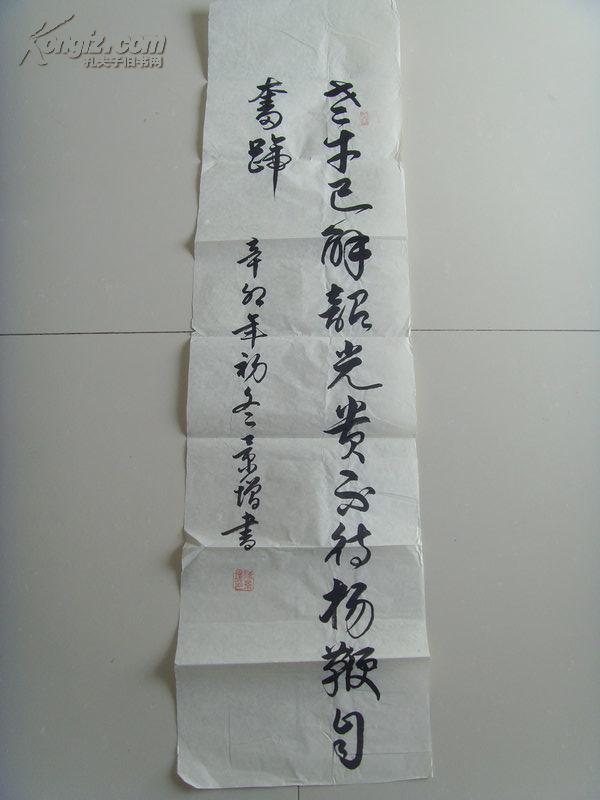 老牛已解韶光贵不待杨鞭自
奮蹄
辛卯年初冬景增书
Kongfz.com
孔夫子旧书网